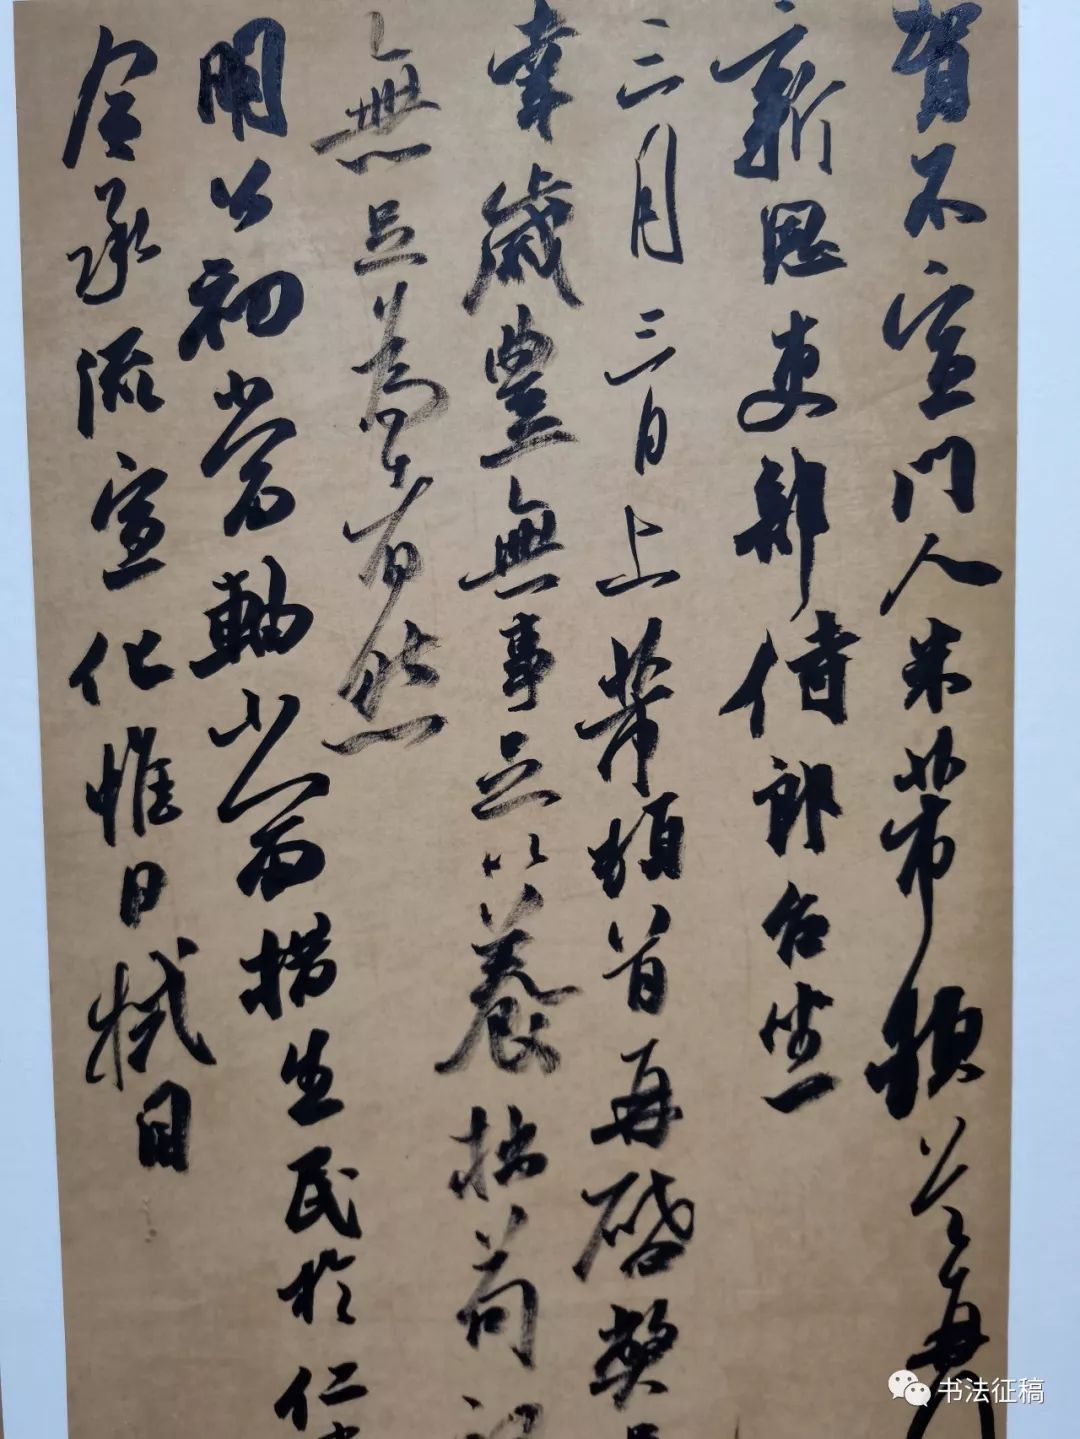 賀不宣門人米芾頓首再
新恩吏部侍郎台坐
三月三日上芾頓首再啓弊邑
幸歲豐無事足以養拙苟
無足爲者然
明公初當軸當措生民於仁
含承流宣化惟日拭目
书法征稿